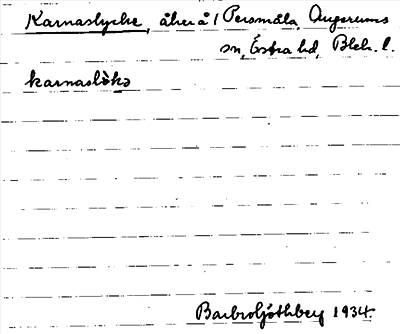 Karnaslycke, åker å 1 Persmåla, Augerums
sn, Östra hd, Blek. l.
karnasløkə
Barbro Ljöthberg 1934.